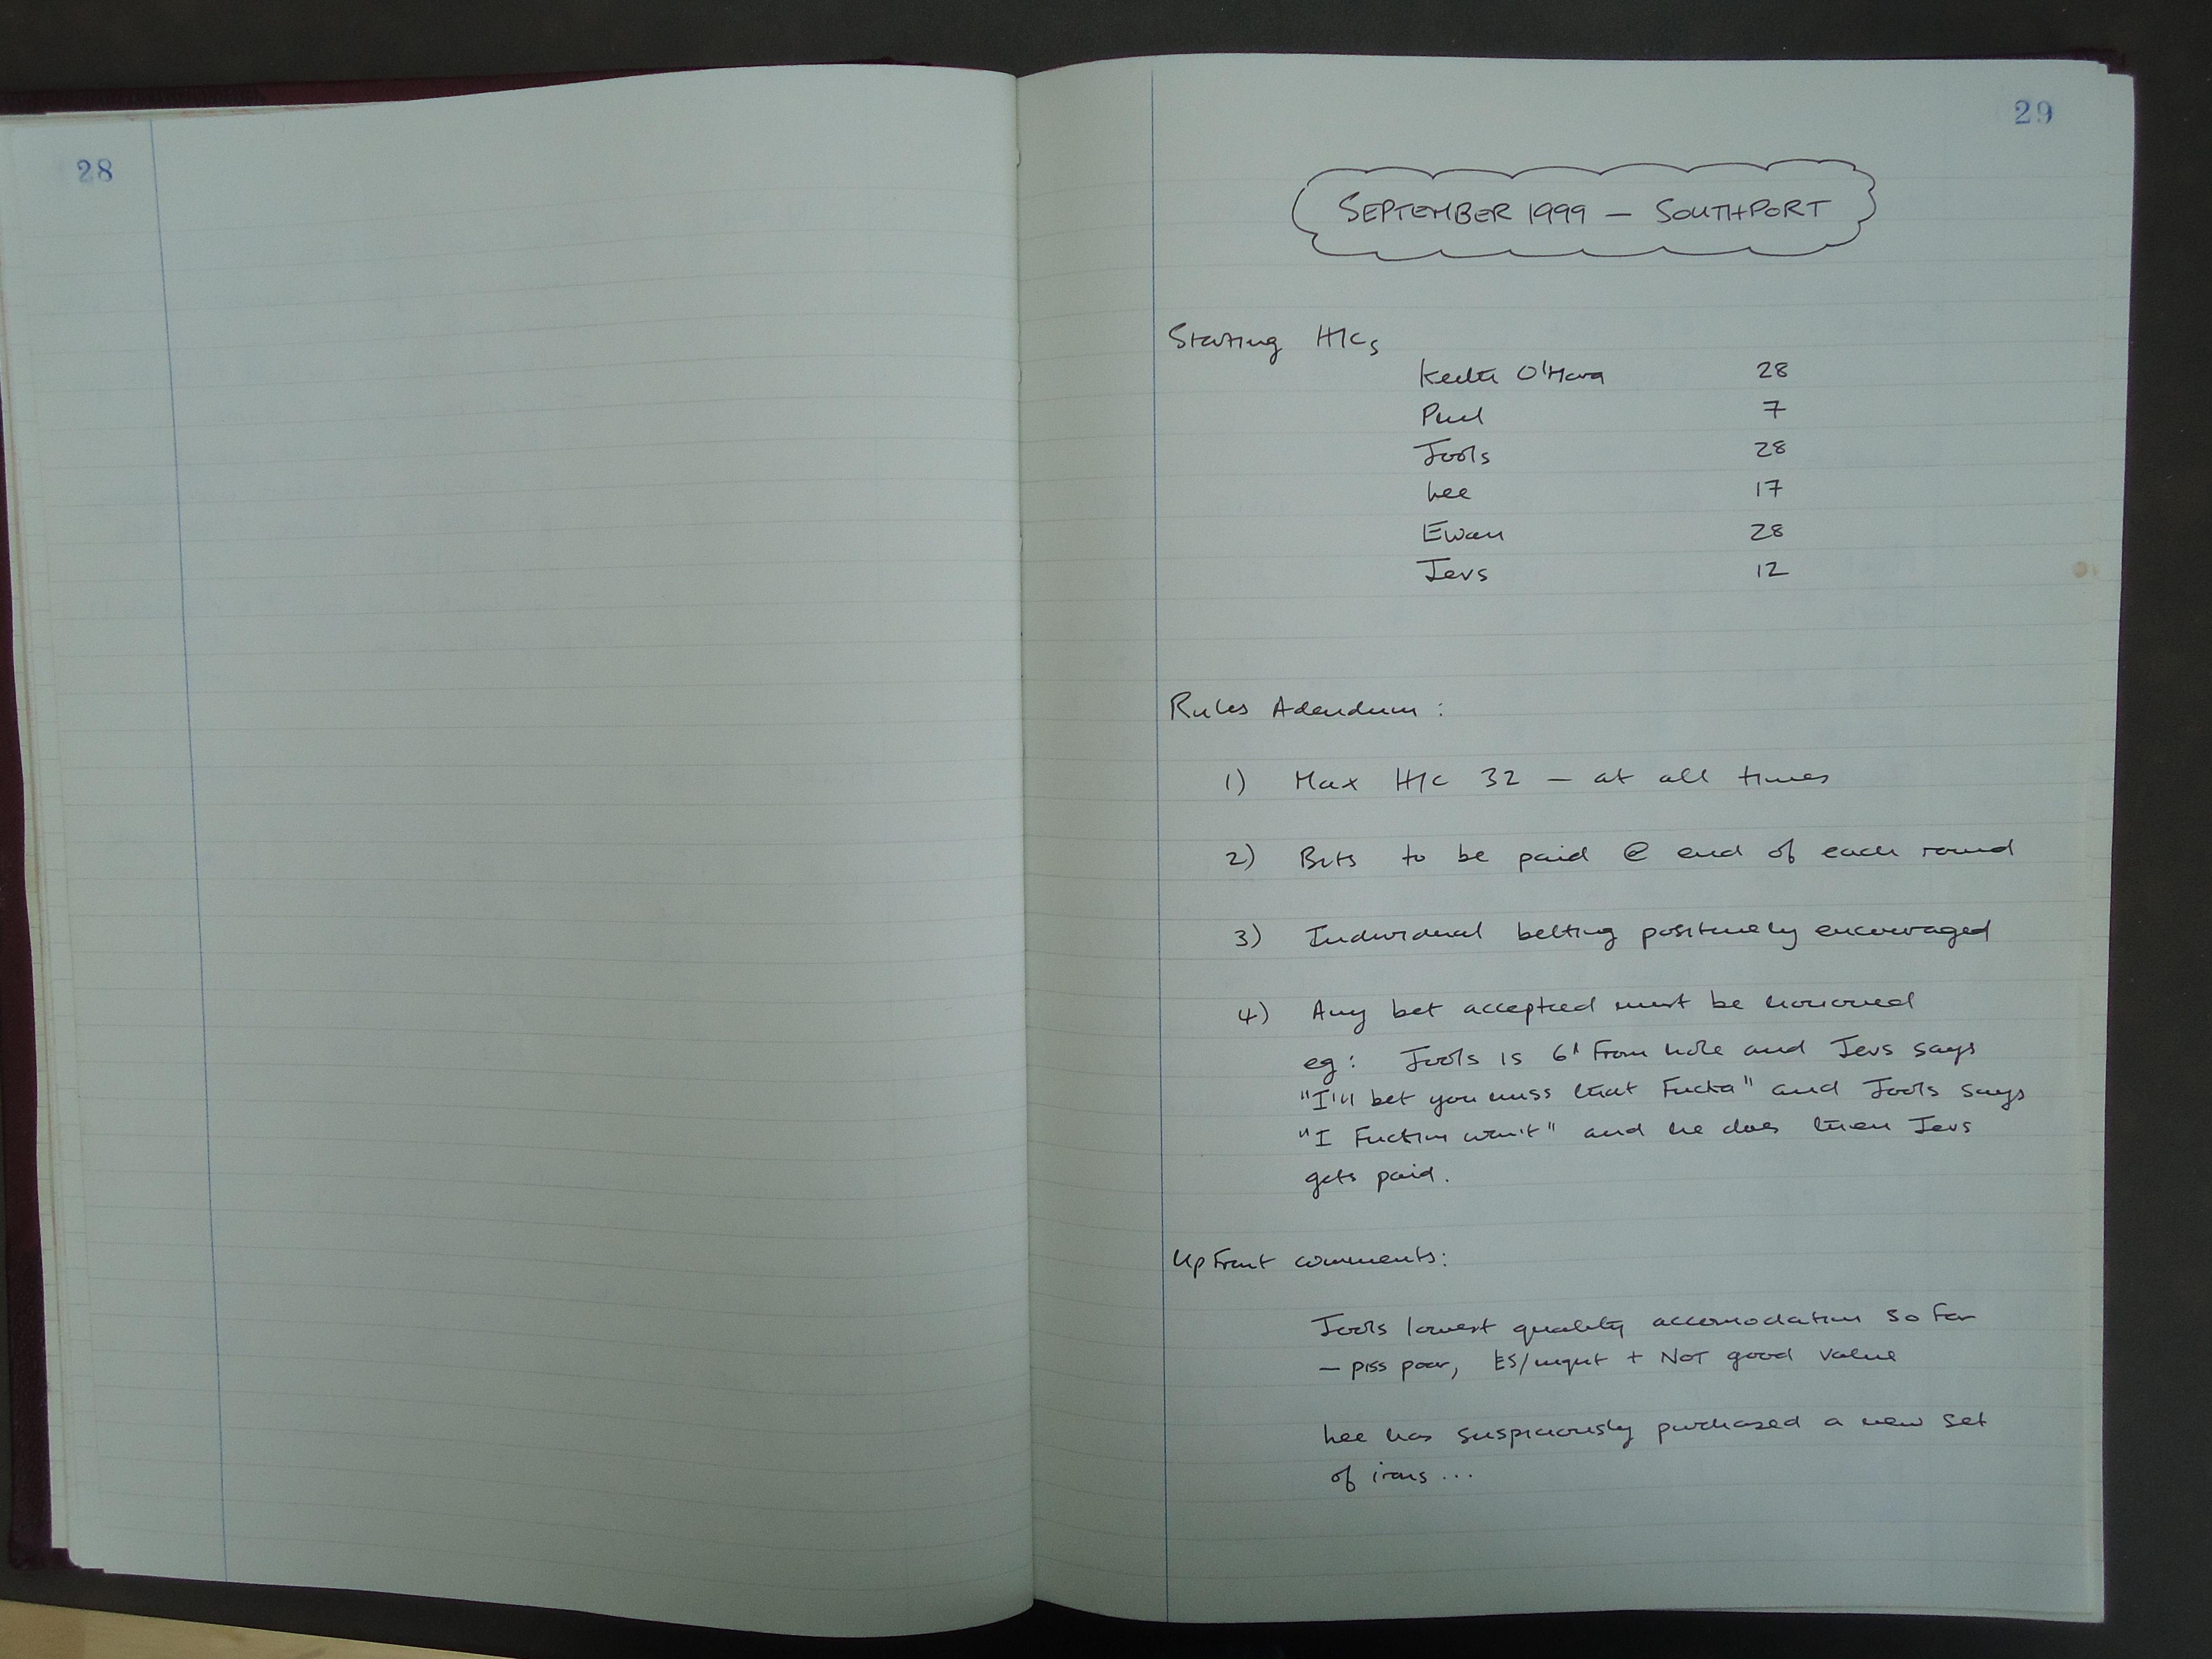 28
29
SEPTEMBER 1999 – SOUTHPORT
Starting H/Cs
Keith O'Hara 28
Paul 7
Jools 28
Lee 17
Ewan 28
Jevs 12
Rules Adendum :
1) Max H/c 32 – at all times
2) Bets to be paid @ end of each round
3) Individual betting positively encouraged
4) Any bet accepted must be honoured
eg: Jools is 6' from hole and Jevs says
"I'll bet you miss that Fucka" and Jools says
"I Fuckin won't" and he does then Jevs
gets paid.
Up Front comments:
Jools lowest quality accomodation so far
– piss poor, + NOT good value
Lee has suspiciously purchased a new set
of irons ...